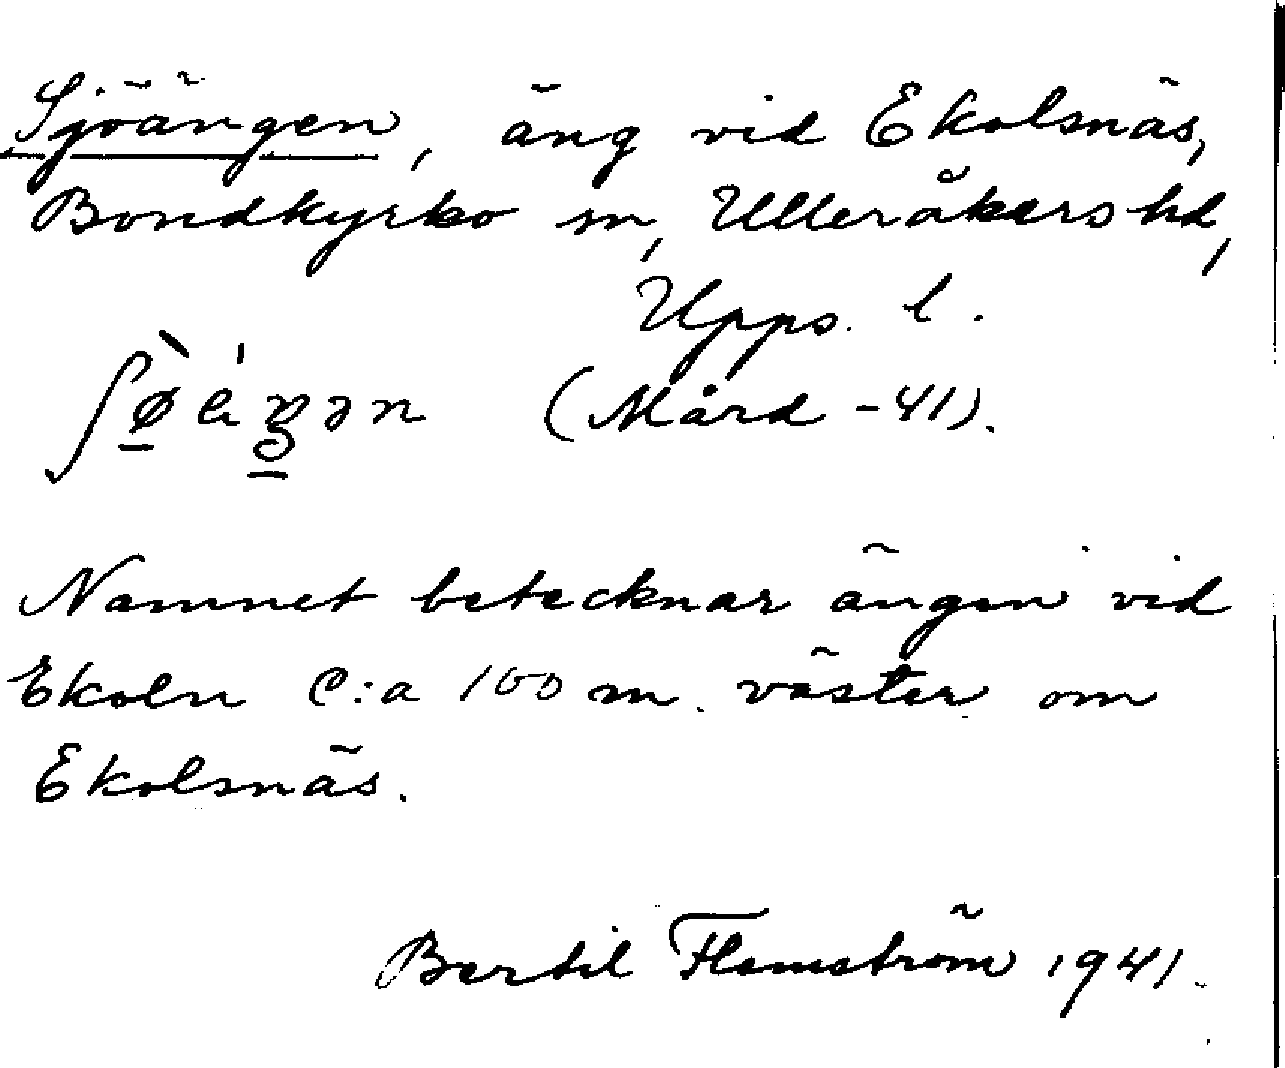 Sjöängen, äng vid Ekolsnäs,
Bondkyrko sn, Ulleråkers hd,
Upps. l.
(Mård -41).
Namnet betecknar ängen vid
Ekoln c:a 100 m. väster om
Ekolsnäs.
Bertil Flemström 1941.